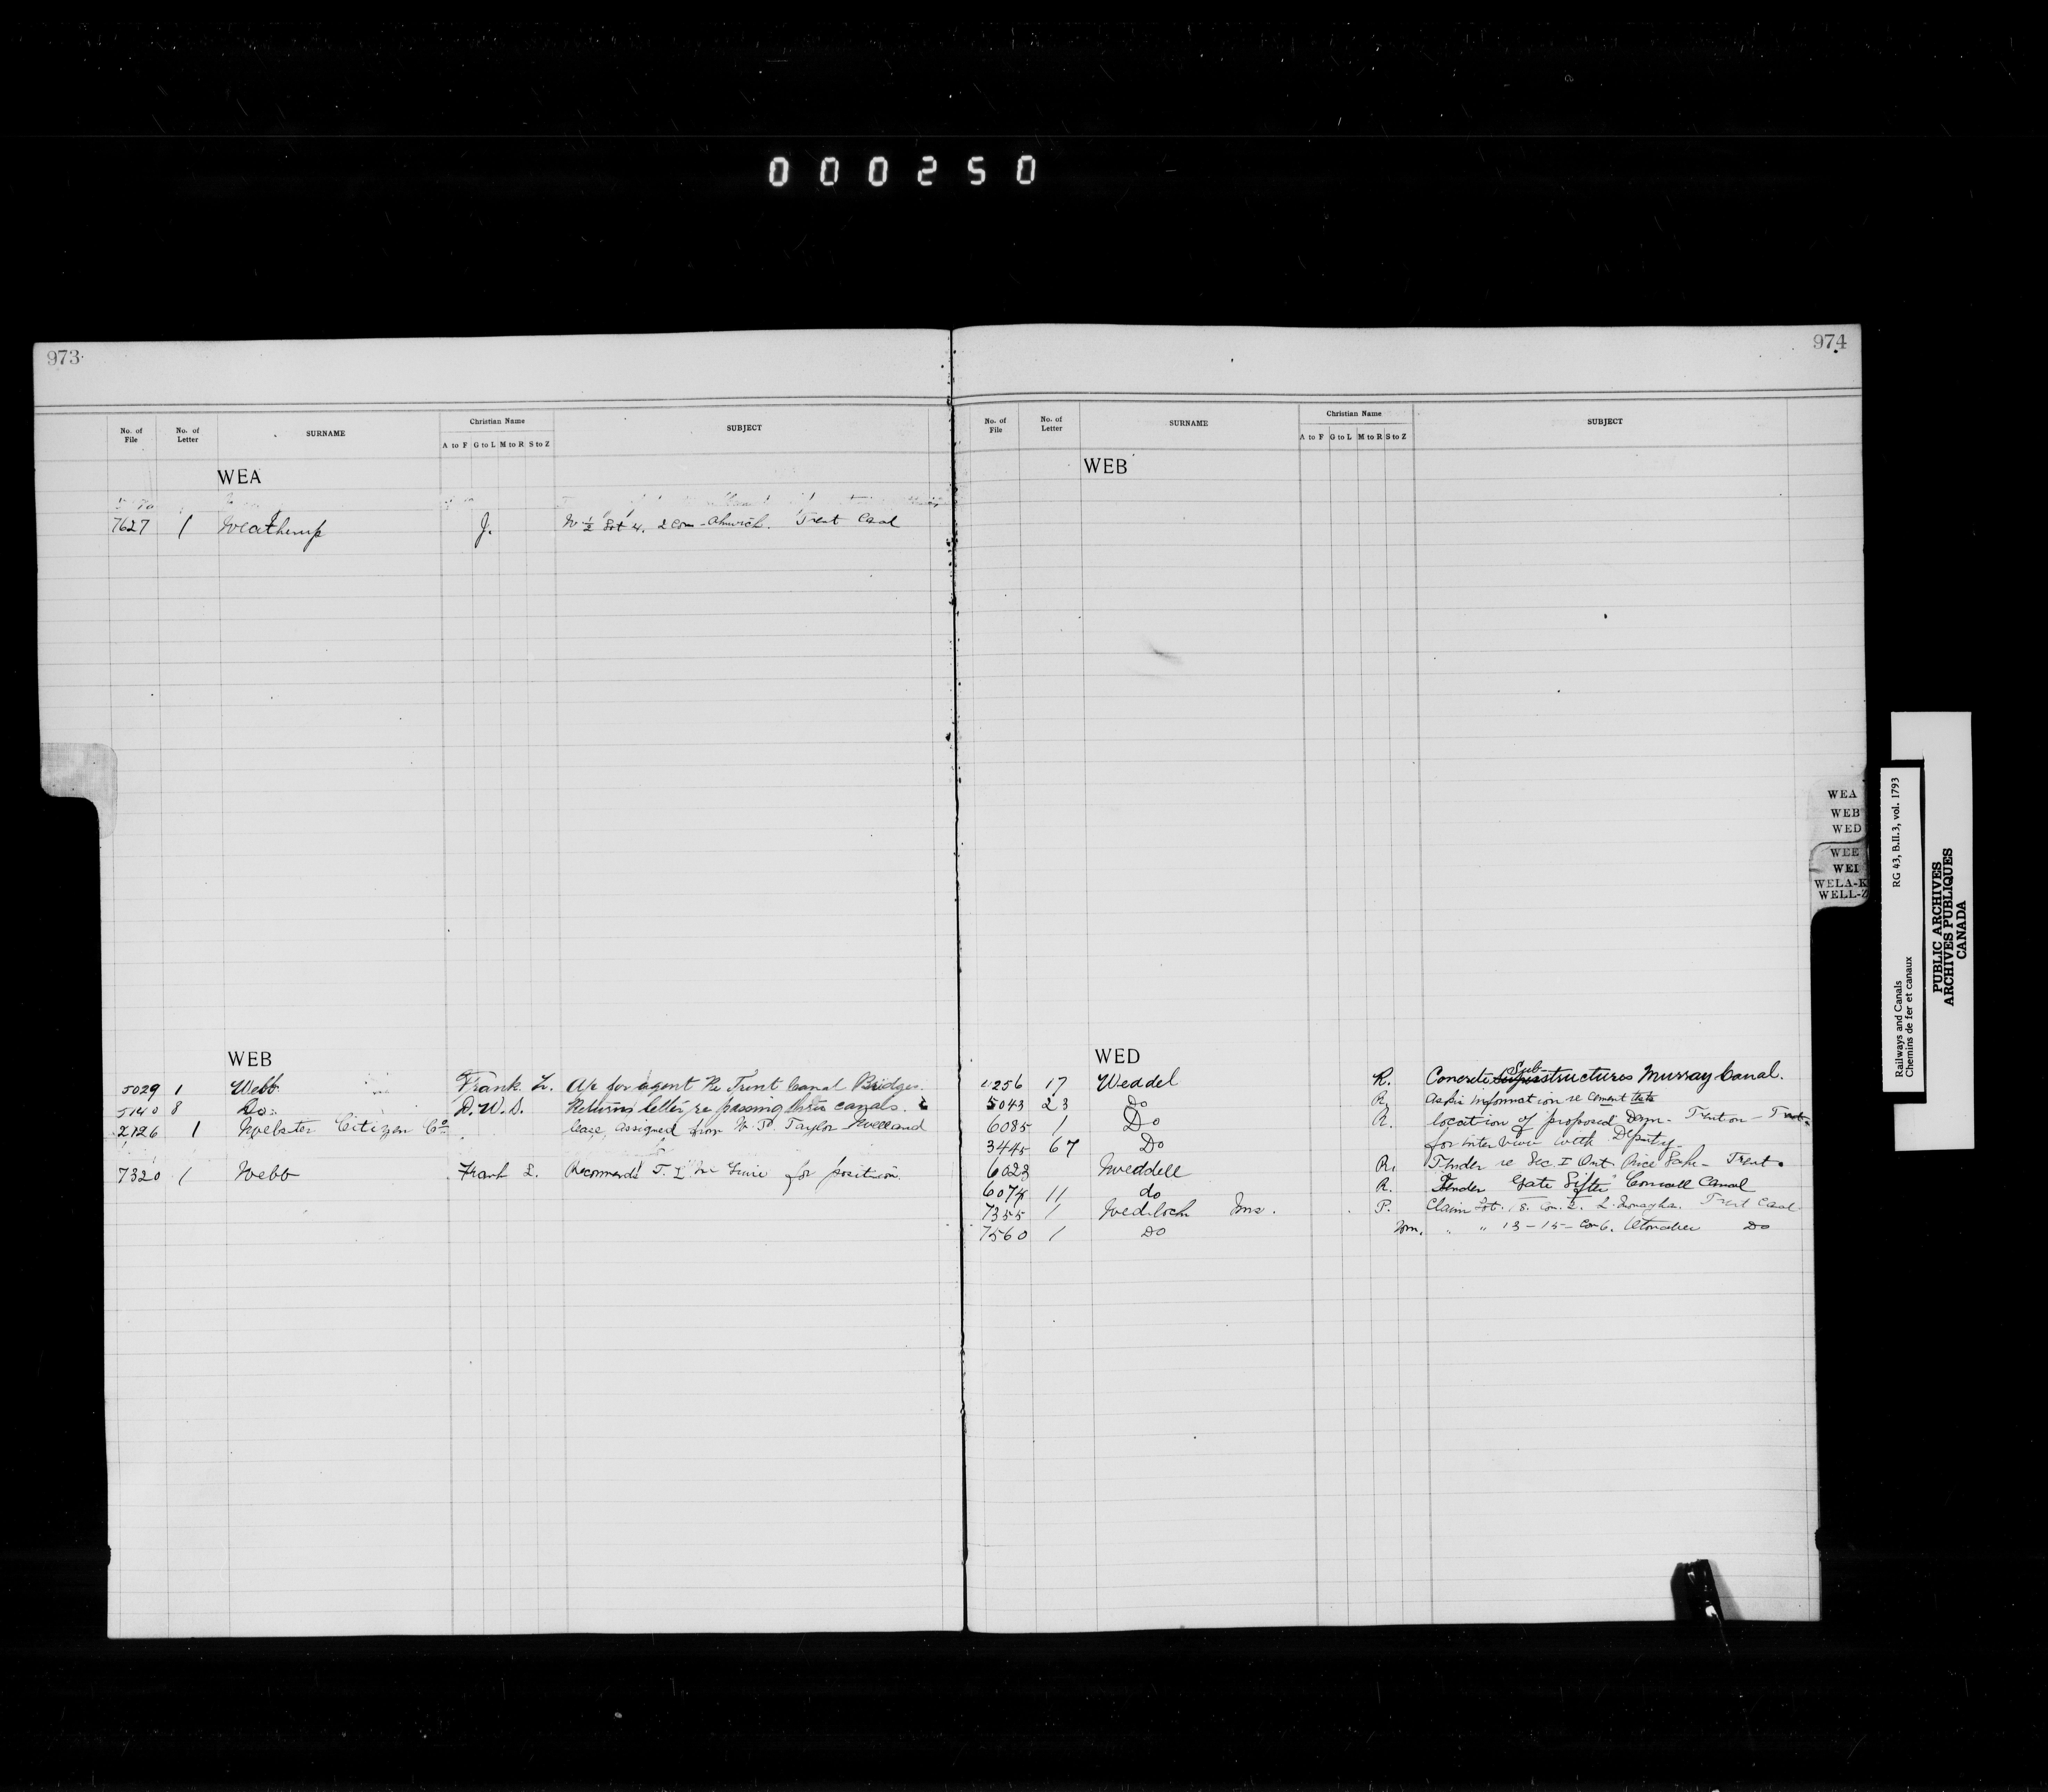 000250
973
No. of File No. of Letter SURNAME Christian Name SUBJECT
A to F G to L M to R S to Z
WEA
7627 1 Weatherup J. W ½ Lot 4. 2 Con - Alnwick. Trent Canal
WEB
5029 1 Webb Frank L. Re Trent Canal Bridges.
5140 8 Do D.W.S. Returns letter re passing thru canals.
2126 1 Webster Citizen Co lease assigned from Taylor Welland
7320 1 Webb Frank L. Recommends for position
974
No. of File No. of Letter SURNAME Christian Name SUBJECT
A to F G to L M to R S to Z
WEB
WED
256 17 Weddel R. Concrete Substructures Murray Canal.
5043 23 Do R. information re cement tests
6085 1 Do R. location of proposed dam - Trenton - Trent
3445 67 Do for interview with Deputy
6023 Weddell R. Tender re Sec. I Ont. Rice Lake - Trent
6074 11 do R. Tender Gate Lifter Cornwall Canal
7355 1 P. Claim Lot. 18. Con. Trent Canal
7560 1 Do Wm. " " 13-15- Con 6. Do
WEA
WEB
WED
WEE
WEI
WELA-K
WELL-Z
Railways and Canals RG 43, B.II.3, vol. 1793
Chemins de fer et canaux
PUBLIC ARCHIVES
ARCHIVES PUBLIQUES
CANADA